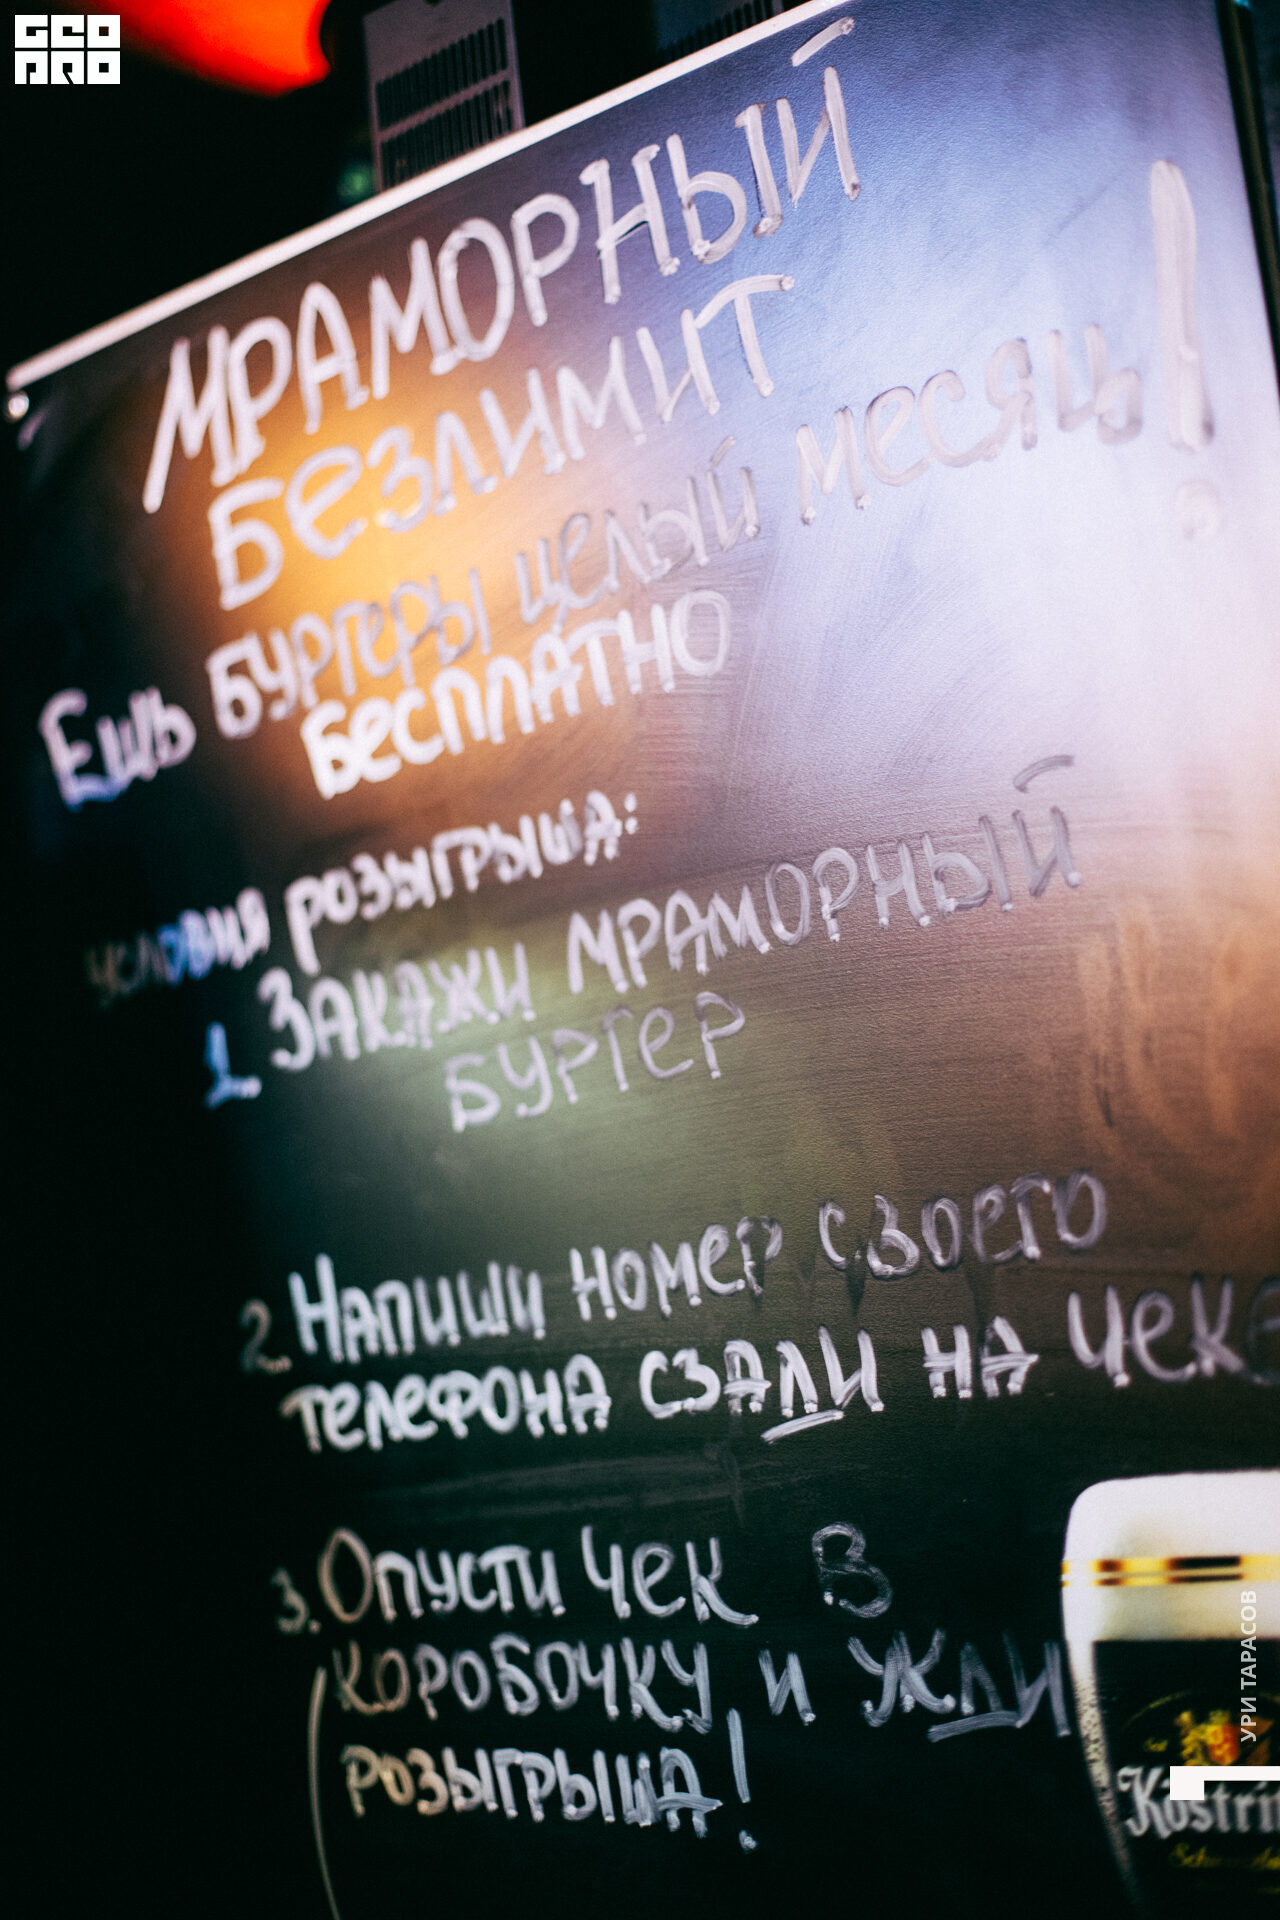 GEO
PRO
МРАМОРНЫЙ
БЕЗЛИМИТ
ЕШЬ БУРГЕРЫ ЦЕЛЫЙ МЕСЯЦЬ!
БЕСПЛАТНО
УСЛОВИЯ РОЗЫГРЫША:
1. ЗАКАЖИ МРАМОРНЫЙ
БУРГЕР
2. НАПИШИ НОМЕР СВОЕГО
ТЕЛЕФОНА СЗАЛИ НА ЧЕКЕ
3. ОПУСТИ ЧЕК В
КОРОБОЧКУ И ЖДИ
РОЗЫГРЫША!
УРИ ТАРАСОВ
Köstri